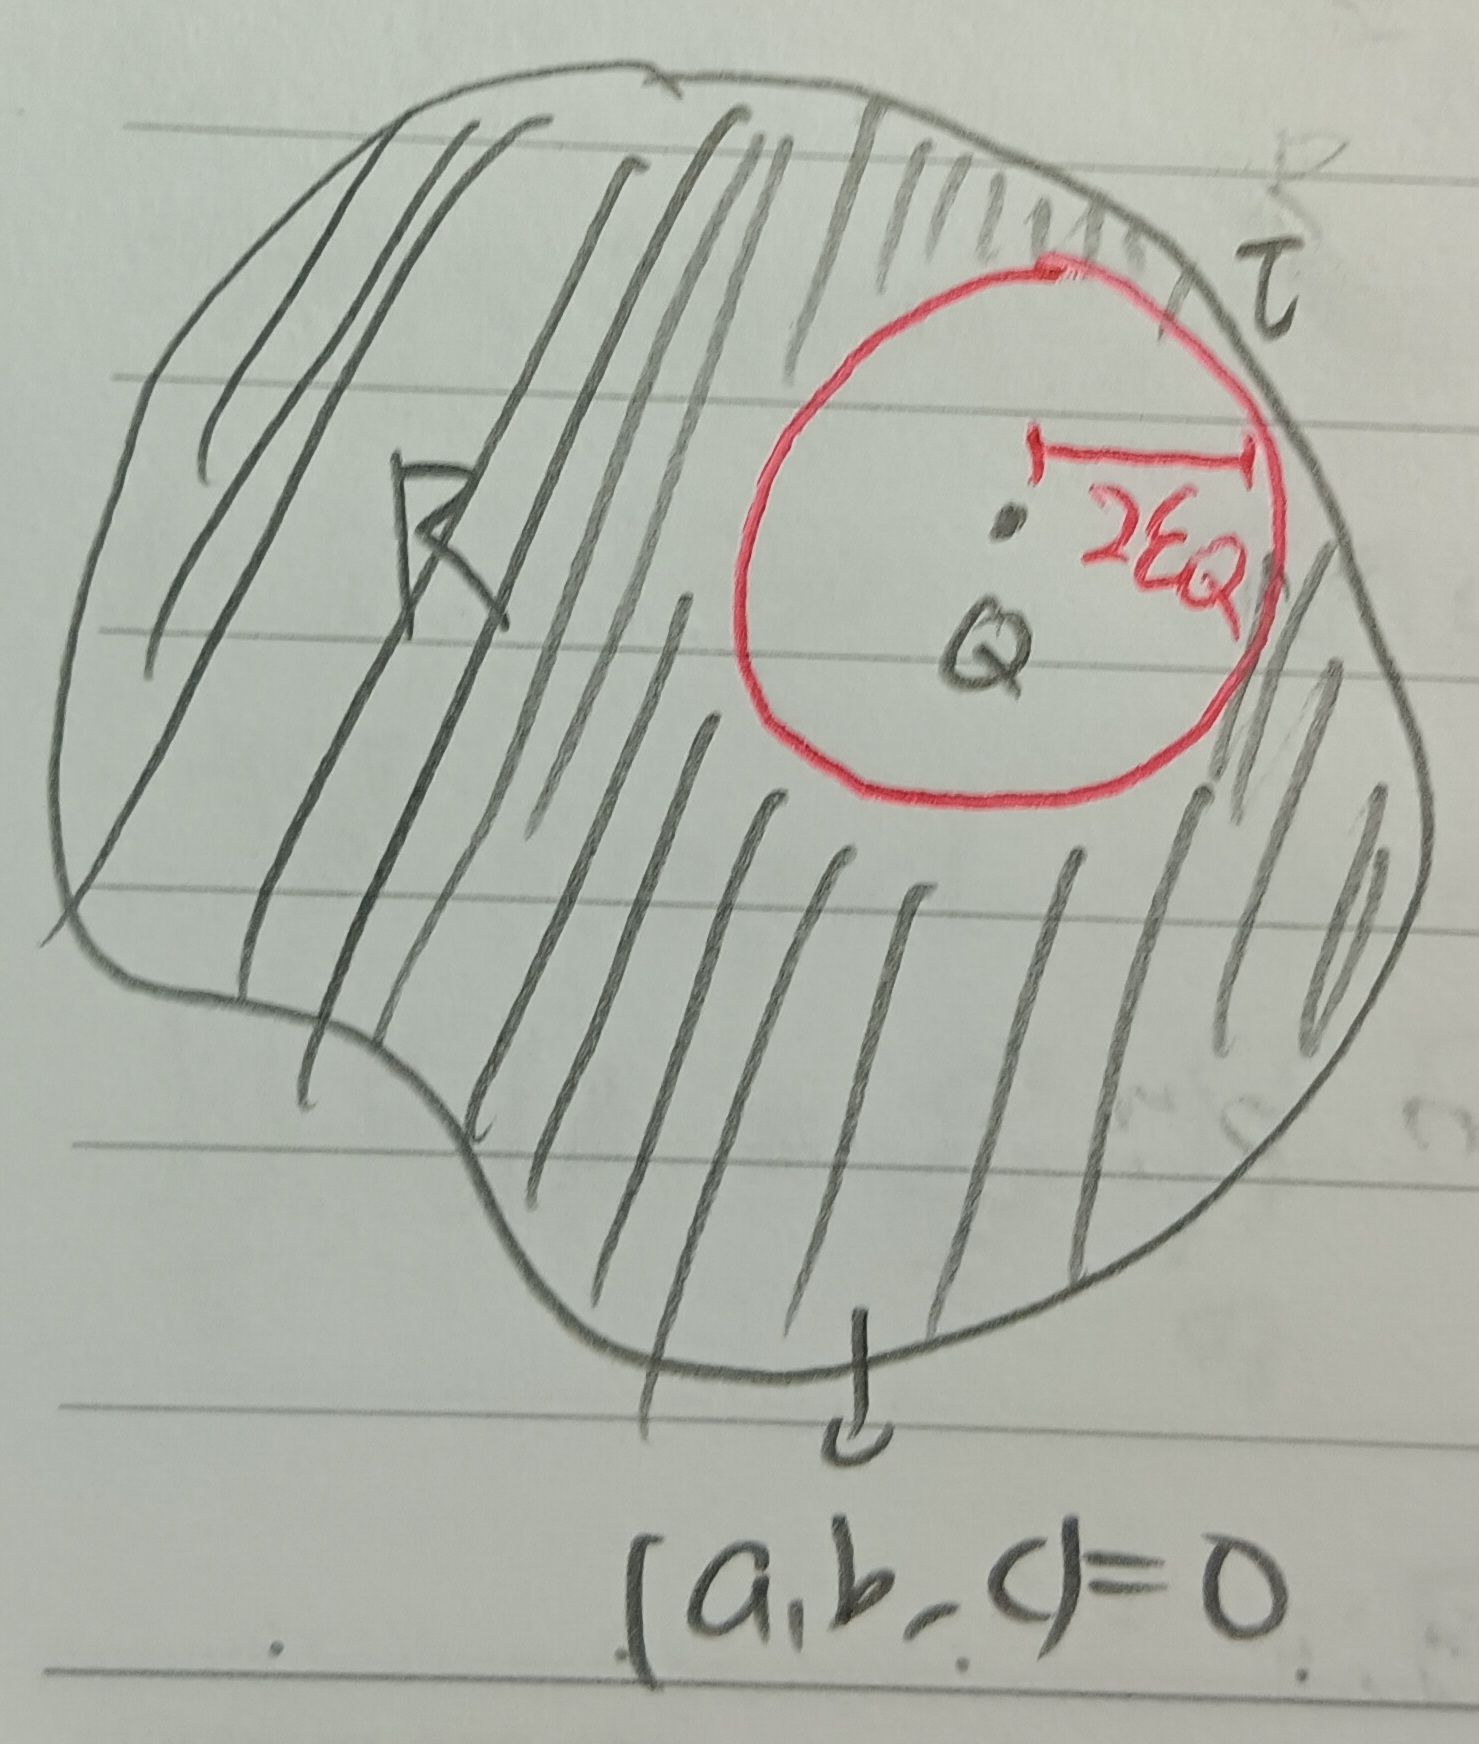 τ
R
2εQ
Q
(a,b,c)=0